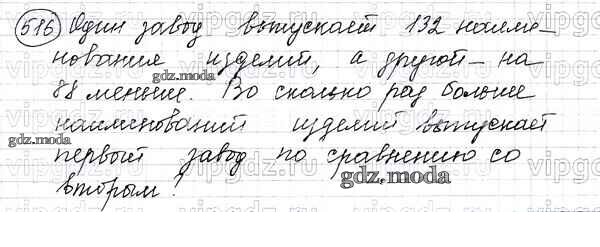 516 Один завод выпускает 132 наиме-
нования изделий, а другой - на
gdz.moda
88 меньше. Во сколько раз больше
gdz.moda
наименований изделий выпускает
первый завод по сравнению со
gdz.moda
вторым?